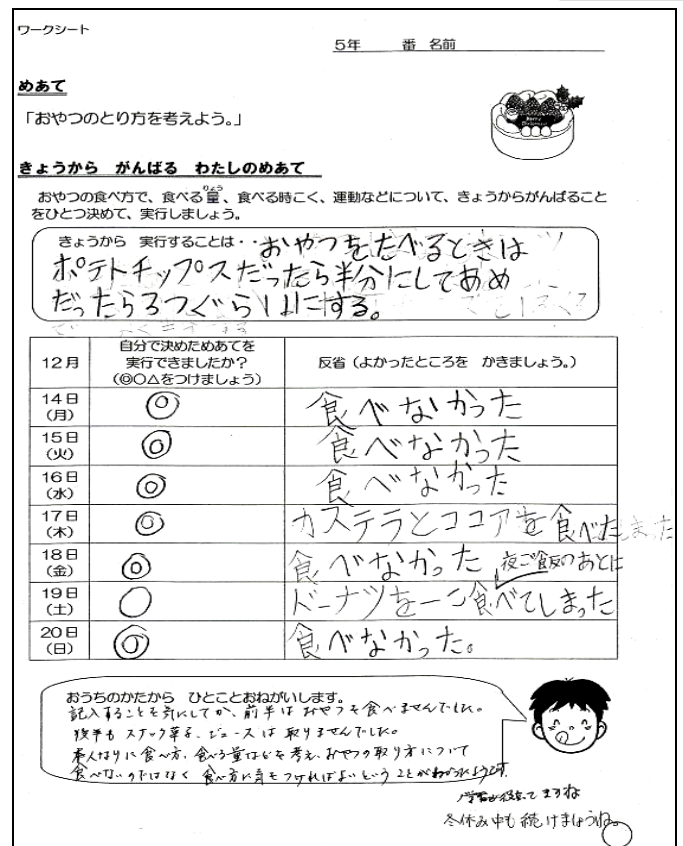 ワークシート
5年 番 名前
めあて
「おやつのとり方を考えよう。」
きょうから がんばる わたしのめあて
おやつの食べ方で、食べる量、食べる時こく、運動などについて、きょうからがんばること
をひとつ決めて、実行しましょう。
きょうから 実行することは・・おやつをたべるときは
ポテトチップスだったら半分にしてあめ
だったら3つぐらいにする。
12月 自分で決めためあてを実行できましたか？（◎○△をつけましょう） 反省（よかったところを かきましょう。）
14日（月） ◎ 食べなかった
15日（火） ◎ 食べなかった
16日（水） ◎ 食べなかった
17日（木） ◎ カステラとココアを食べた
18日（金） ◎ 食べなかった
夜ご飯のあとに
19日（土） ○ ドーナツを一こ食べてしまった
20日（日） ◎ 食べなかった。
おうちのかたから ひとことおねがいします。
記入することを気にしてか、前半はおやつを食べませんでした。
後半もスナック菓子、ジュースは取りませんでした。
本人なりに食べ方、食べる量などを考え、おやつの取り方について
食べないのではなく食べ方に気をつければよいということがわかったようです。
学習が役立ってますね
冬休み中も続けましょうね。